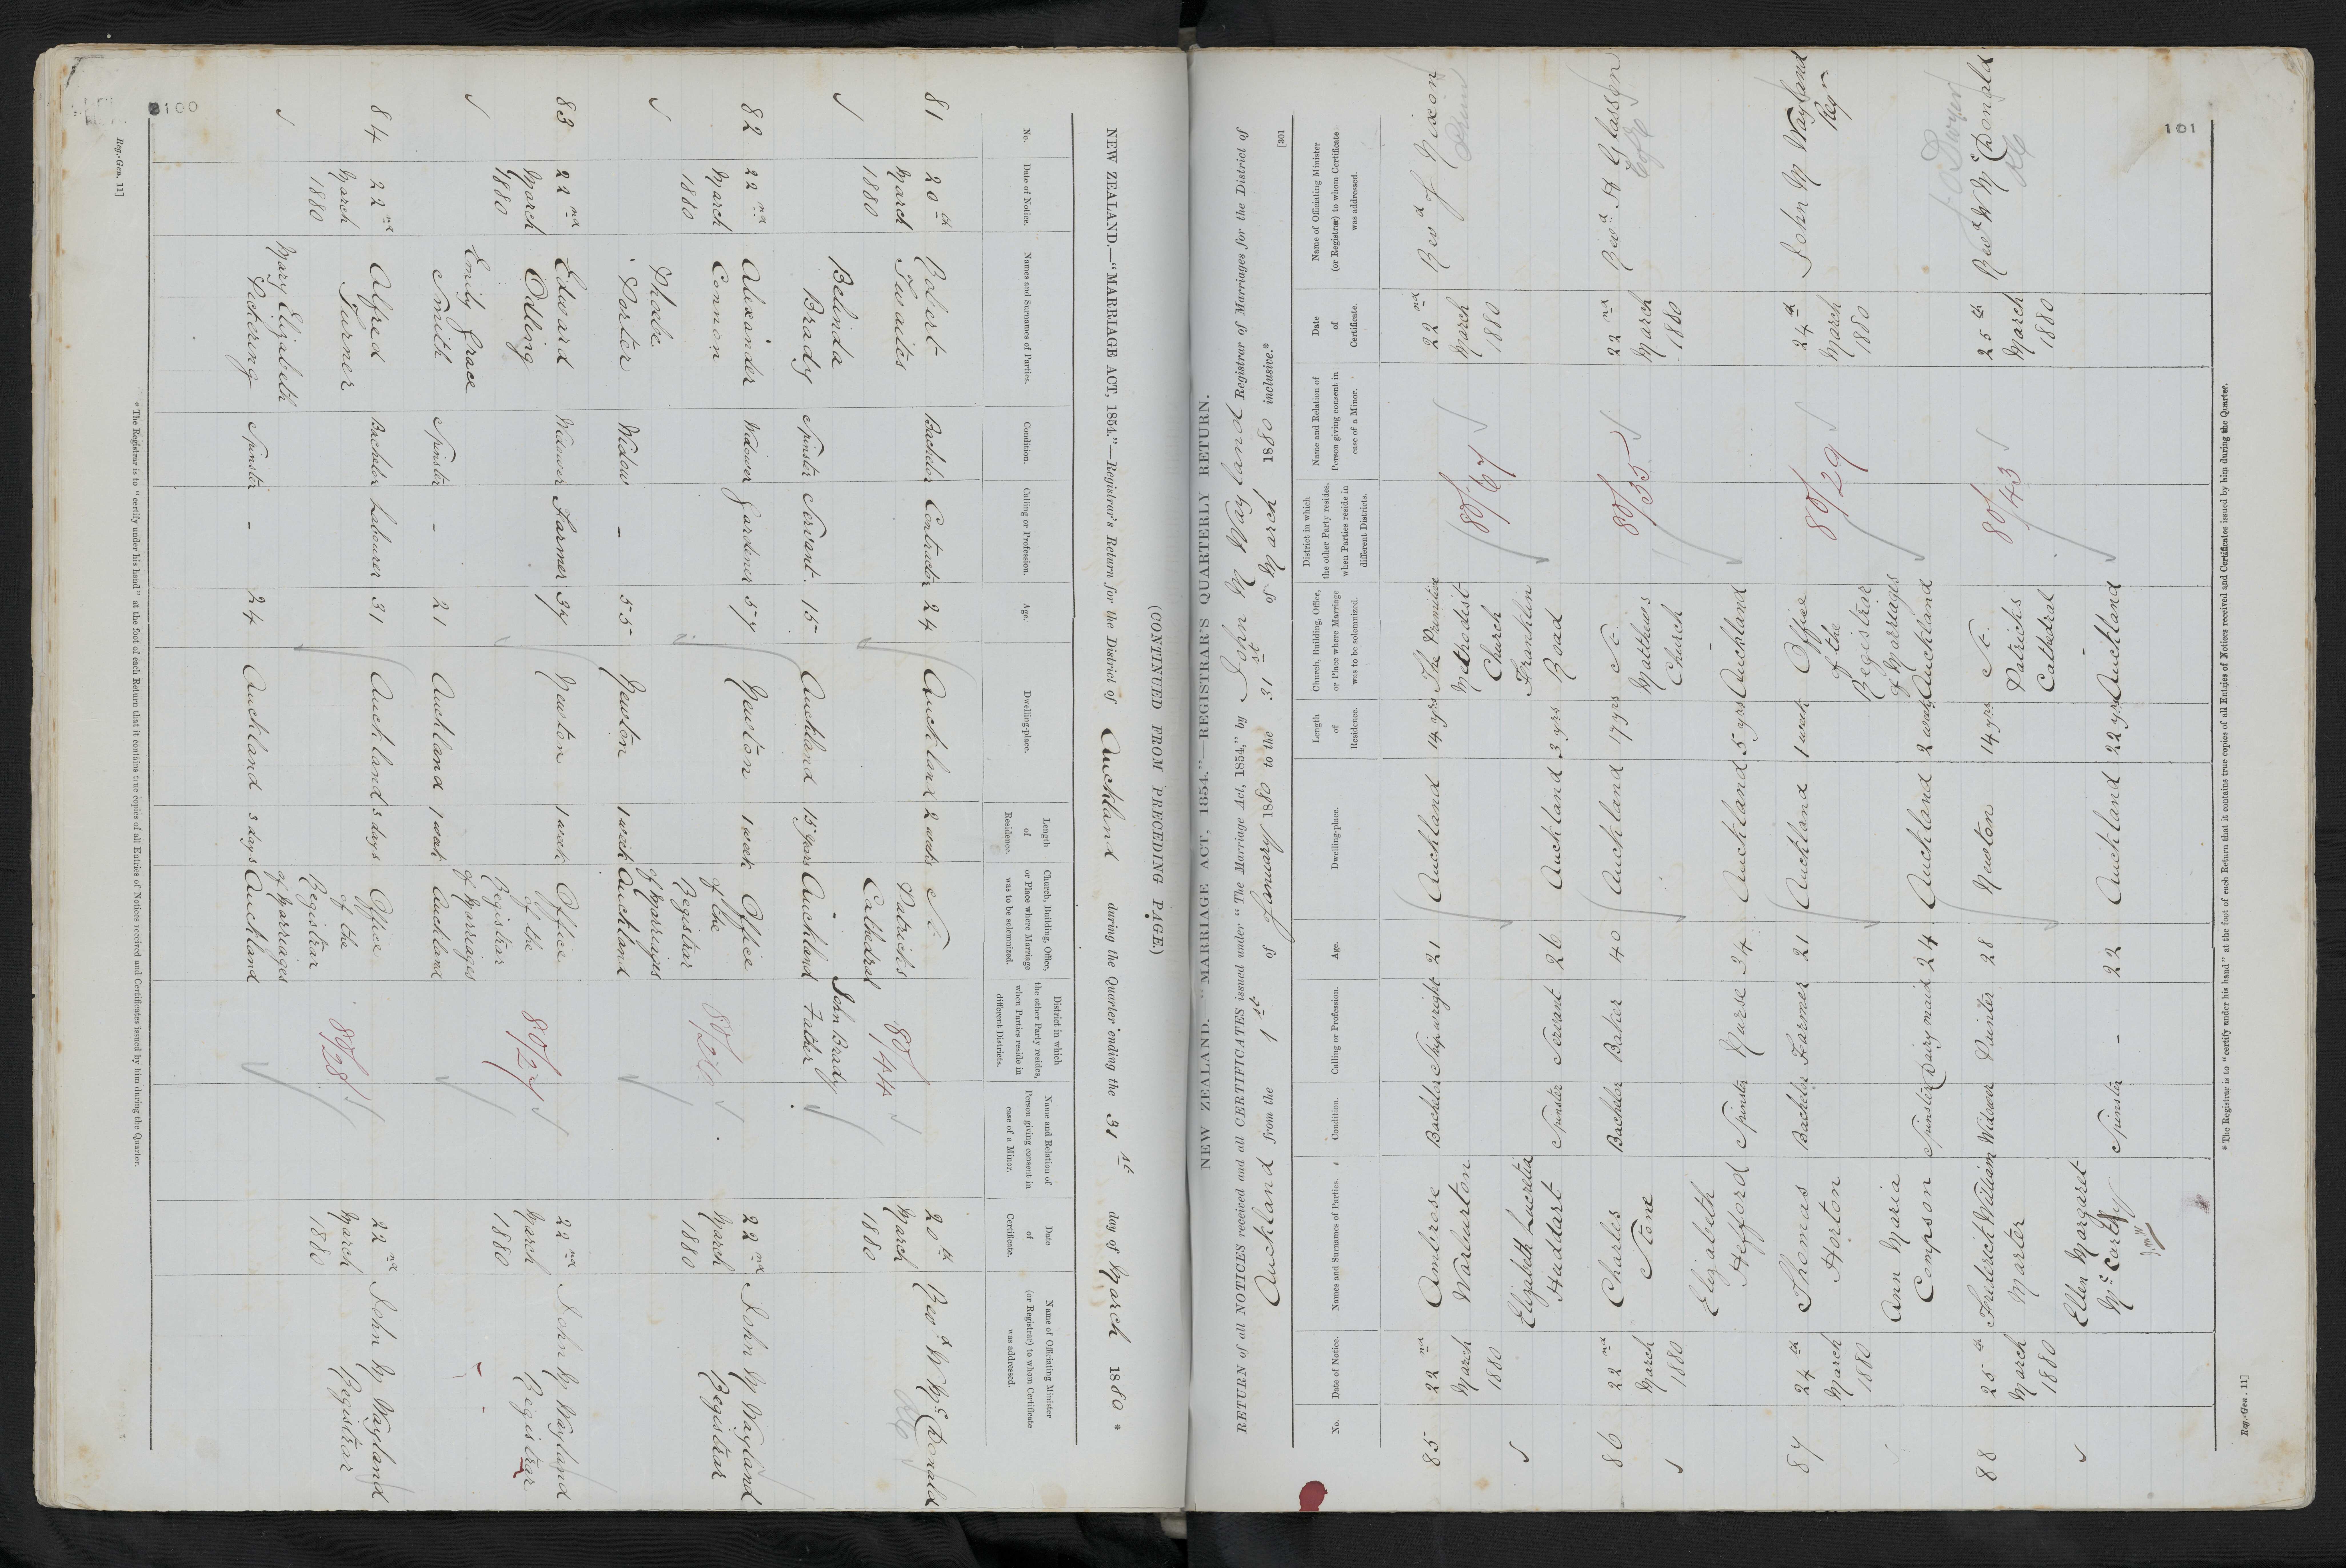 100
(CONTINUED FROM PRECEDING PAGE)
NEW ZEALAND.—"MARRIAGE ACT, 1854."—Registrar's Return for the District of Auckland during the Quarter ending the 31st day of March 1880 *
No. Date of Notice. Names and Surnames of Parties. Condition. Calling or Profession. Age. Dwelling-place. Length of Residence. Church, Building, Office, or Place where Marriage was to be solemnized. District in which the other Party resides, when Parties reside in different Districts. Name and Relation of Person giving consent in case of a Minor. Date of Certificate. Name of Officiating Minister (or Registrar) to whom Certificate was addressed.
81 20th Robert Bachelor Contractor 24 Auckland 2 weeks St. 20th Revd W McDonald
March Twaites Patrick's 80/44 March RC
1880 Cathedral 1880
Belinda John Brady
Brady Spinster Servant 15 Auckland 15 years Auckland Father
82 22nd Alexander Widower Gardener 57 Newton 1 week Office 22nd John M Wayland
March Connon of the March Registrar
1880 Registrar 1880
Phoebe of Marriages
Porter Widow - 55 Newton 1 week Auckland
83 22nd Edward Widower Farmer 37 Newton 1 week Office 22nd John M Wayland
March Odling of the 80/27 March Registrar
1880 Registrar 1880
Emily Grace of Marriages
Smith Spinster - 21 Auckland 1 week Auckland
84 22nd Alfred Bachelor Labourer 31 Auckland 3 days Office 22nd John M Wayland
March Turner of the 80/28 March Registrar
1880 Registrar 1880
Mary Elizabeth of Marriages
Pickering Spinster - 24 Auckland 3 days Auckland
* The Registrar is to "certify under his hand" at the foot of each Return that it contains true copies of all Entries of Notices received and Certificates issued by him during the Quarter.
Reg.-Gen. 11]
101
[301
NEW ZEALAND.—"MARRIAGE ACT, 1854."—REGISTRAR'S QUARTERLY RETURN.
RETURN of all NOTICES received and all CERTIFICATES issued under "The Marriage Act, 1854," by John M Wayland Registrar of Marriages for the District of
Auckland from the 1st of January 1880 to the 31st of March 1880 inclusive.*
No. Date of Notice. Names and Surnames of Parties. Condition. Calling or Profession. Age. Dwelling-place. Length of Residence. Church, Building, Office, or Place where Marriage was to be solemnized. District in which the other Party resides, when Parties reside in different Districts. Name and Relation of Person giving consent in case of a Minor. Date of Certificate. Name of Officiating Minister (or Registrar) to whom Certificate was addressed.
85 22nd Ambrose Bachelor Shipwright 21 Auckland 14 yrs The Primitive 22nd Revd J Nixon
March Warburton Methodist 80/67 March
1880 Church 1880
Elizabeth Lucretia Franklin
Huddart Spinster Servant 26 Auckland 3 yrs Road
86 22nd Charles Bachelor Baker 40 Auckland 17 yrs St. 22nd Revd H Glasson
March Stone Matthews 80/55 March CofE
1880 Church 1880
Elizabeth -
Hefford Spinster Nurse 34 Auckland 5 yrs Auckland
87 24th Thomas Bachelor Farmer 21 Auckland 1 week Office 24th John M Wayland
March Horton of the 80/29 March Regr
1880 Registrar 1880
Ann Maria of Marriages
Compson Spinster Dairy maid 24 Auckland 2 weeks Auckland
88 25th Frederick William Widower Painter 28 Newton 14 yrs St. 25th Revd W McDonald
March Marter Patricks 80/43 March RC
1880 Cathedral 1880
Ellen Margaret -
McCarthy Spinster - 22 Auckland 22 yrs Auckland
* The Registrar is to "certify under his hand" at the foot of each Return that it contains true copies of all Entries of Notices received and Certificates issued by him during the Quarter.
Reg.-Gen. 11]